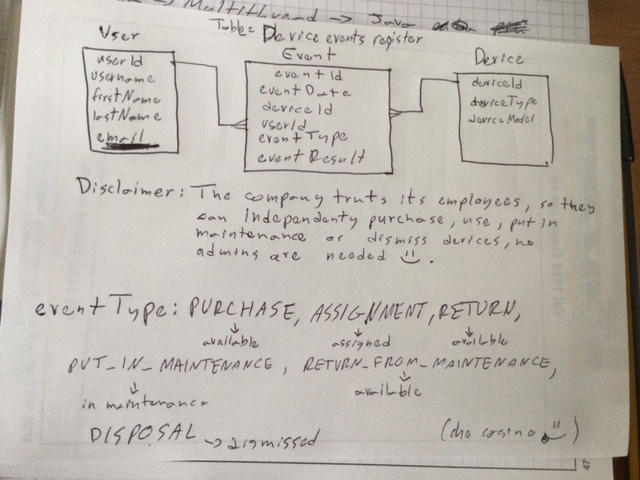 Multithread → Java
Table: Device events register
User
userId
username
firstName
lastName
email
Event
eventId
eventDate
deviceId
userId
eventType
eventResult
Device
deviceId
deviceType
deviceModel
Disclaimer: The company truts its employees, so they
can independenty purchase, use, put in
maintenance or dismiss devices, no
admins are needed
eventType: PURCHASE, ASSIGNMENT, RETURN,
available assigned available
PUT_IN_MAINTENANCE, RETURN_FROM_MAINTENANCE,
in maintenance available
DISPOSAL → dismissed (che casino)
47